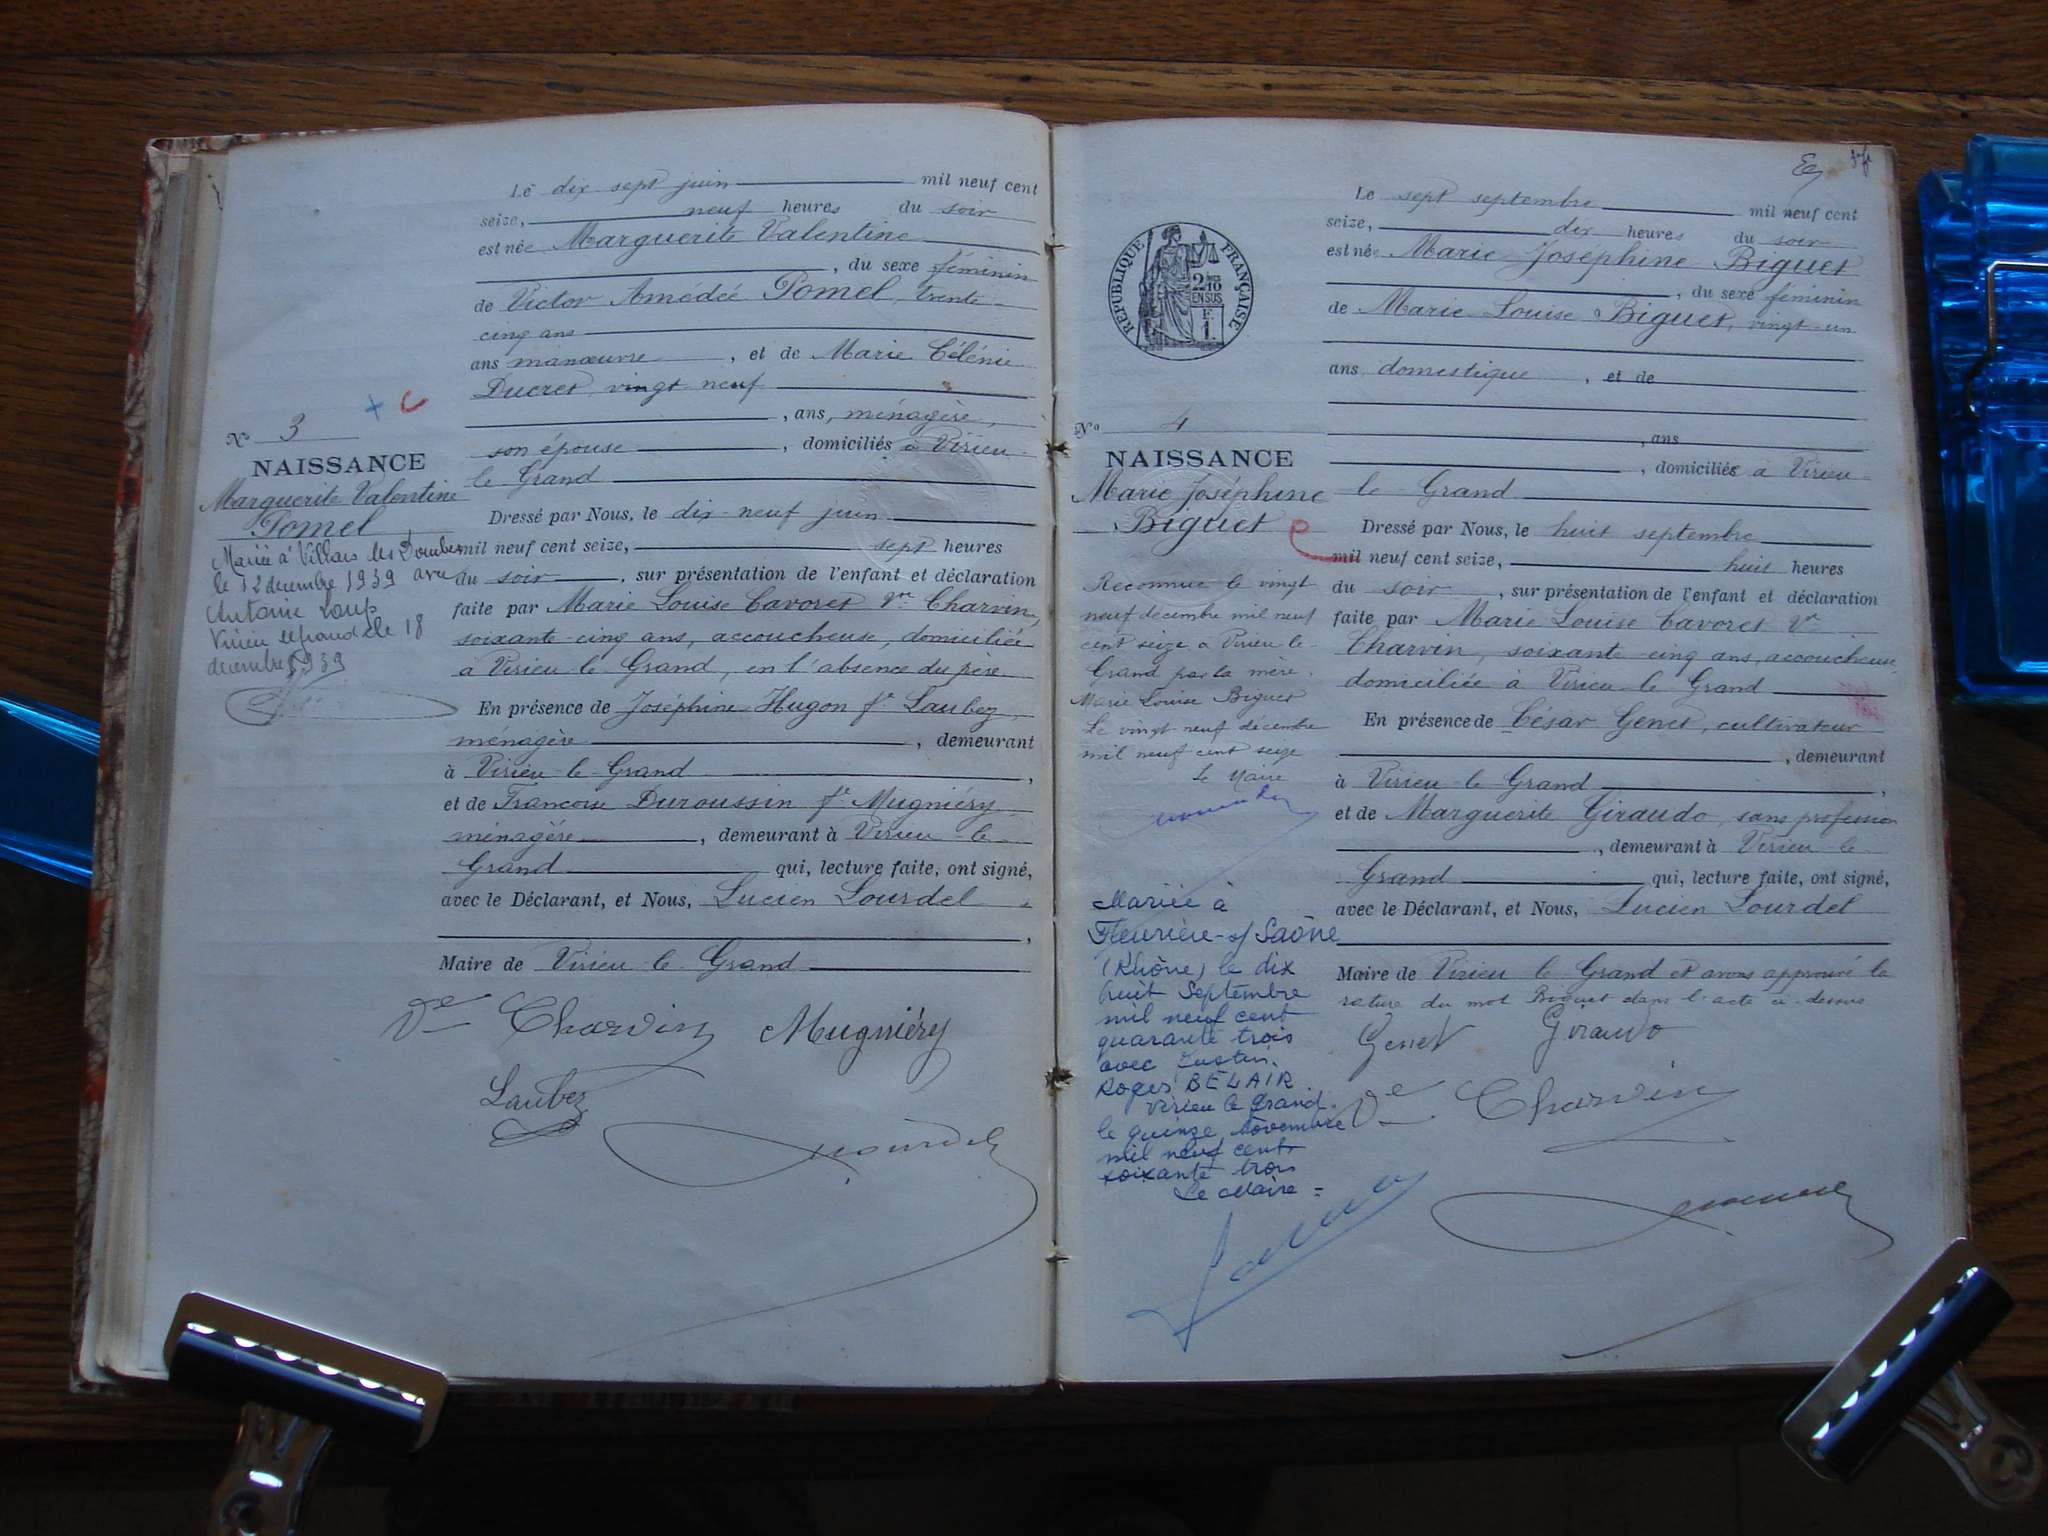 Le dix sept juin mil neuf cent
seize, neuf heures du soir
est née Marguerite Valentine
, du sexe féminin
de Victor Amédée Pomel, trente
cinq ans
ans manœuvre, et de Marie Célénie
Ducret, vingt neuf
, ans, ménagère,
son épouse, domiciliés à Virieu
le Grand
Dressé par Nous, le dix-neuf juin
mil neuf cent seize, sept heures
du soir, sur présentation de l'enfant et déclaration
faite par Marie Louise Cavoret Vve Charvin,
soixante-cinq ans, accoucheuse, domiciliée
à Virieu-le-Grand, en l'absence du père
En présence de Joséphine Hugon fe Laubez
ménagère, demeurant
à Virieu-le-Grand,
et de Francoise Duroussin fe Mugniéry
ménagère, demeurant à Virieu-le-
Grand qui, lecture faite, ont signé,
avec le Déclarant, et Nous, Lucien Lourdel
,
Maire de Virieu-le-Grand
Ve Charvin Mugniéry
Laubez
Lourdel
No 3
NAISSANCE
Marguerite Valentine
Pomel
Mariée à Villars les Dombes
le 12 decembre 1939 avec
Antoine Loup
Virieu le grand le 18
decembre 1939
RÉPUBLIQUE FRANÇAISE
2/10
EN SUS
F.
1.
No 4
NAISSANCE
Marie Joséphine
Biguet
Reconnue le vingt
neuf décembre mil neuf
cent seize à Virieu-le-
Grand par la mère
Marie Louise Biguet
Le vingt neuf décembre
mil neuf cent seize
Le Maire
Mariée à
Fleurieu-s/ Saône
(Rhône) le dix
huit Septembre
mil neuf cent
quarante trois
avec
Roger BELAIR
Virieu le Grand
le quinze Novembre
mil neuf cent
soixante trois
Le Maire =
Le sept septembre mil neuf cent
seize, dix heures du soir
est née Marie Joséphine Biguet
, du sexe féminin
de Marie Louise Biguet, vingt-un
ans, domestique, et de
, ans
, domiciliée à Virieu-
le-Grand
Dressé par Nous, le huit septembre
mil neuf cent seize, huit heures
du soir, sur présentation de l'enfant et déclaration
faite par Marie Louise Cavoret Ve
Charvin, soixante-cinq ans, accoucheuse
domiciliée à Virieu-le-Grand
En présence de César Genet, cultivateur
, demeurant
à Virieu-le-Grand,
et de Marguerite Giraudo, sans profession
, demeurant à Virieu-le-
Grand qui, lecture faite, ont signé,
avec le Déclarant, et Nous, Lucien Lourdel
Maire de Virieu le Grand et avons approuvé la
rature du mot Biguet dans l'acte ci-dessus
Genet Giraudo
Ve Charvin